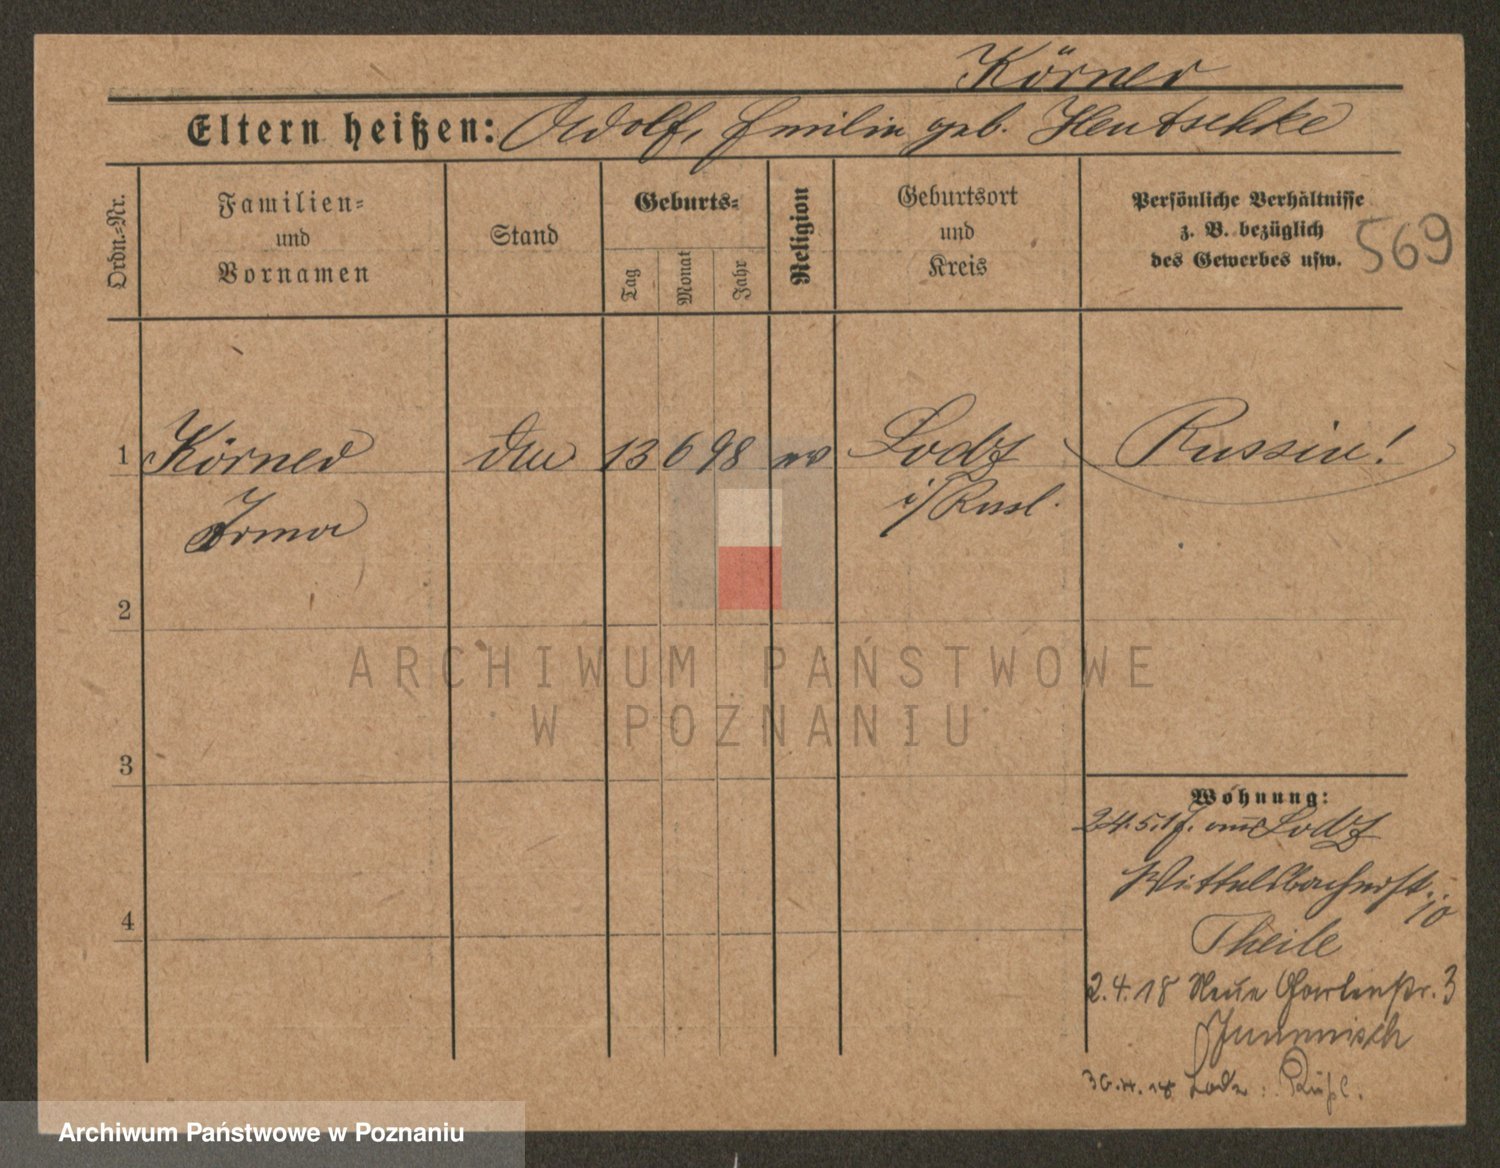 Körner
Eltern heißen: Adolf, Emilie geb. Hentschke
Ordn.-Nr.
Familien-
und
Vornamen
Stand
Geburts-
Tag
Monat
Jahr
Religion
Geburtsort
und
Kreis
Persönliche Verhältnisse
z. B. bezüglich
des Gewerbes usw.
569
1 Körner 13 6 98 ev Lodz Russin!
Irma i/Russl.
2
3
4
Wohnung:
24.5.17. aus Lodz
Wittelsbacherstr.
10
Theile
2.4.18 Neue Gartenstr. 3
30.4.18 Lodz: Rußl.
ARCHIWUM PAŃSTWOWE
W POZNANIU
Archiwum Państwowe w Poznaniu